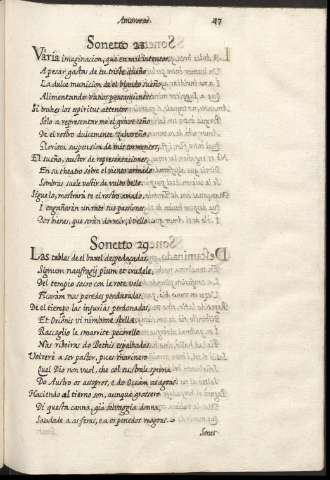 Amorosos. 47
Sonetto 28.
Varia imaginacion, que en mil intentos
A pesar gastas de tu triste dueño
La dulce municion del blando sueño,
Alimentando vanos pensamientos:
Si traes los espiritus attentos
Solo a representarme el grave ceño
De el rostro dulcemente zahareño
Gloriosa suspension de mis tormentos;
El sueño, auctor de representaciones,
En su theatro sobre el viento armado
Sombras suele vestir de vulto bello.
Siguelo, mostrarate el rostro amado,
I engañarán un rato tus passiones
Dos bienes, que serán dormir, i vello.
Sonetto 29.
Las tablas de el baxel despedaçadas,
Signum naufragij pium et crudele,
Del tempio sacro con le rotte vele
Ficaram nas paredes penduradas.
De el tiempo las injurias perdonadas,
Et Orionis vi nimbosæ stellæ
Raccoglio le smarrite pecorelle
Nas ribeiras do Bethis espalhadas.
Volveré a ser pastor, pues marinero
Quel Dio non vuol, che col suo strale sprona
Do Austro os assopros, e do Oceám as agoas:
Haciendo al tierno son, aunque grossero
Di questa canna, già selvaggia donna,
Saudade a as feras, e a os penedos magoas.
Sonet